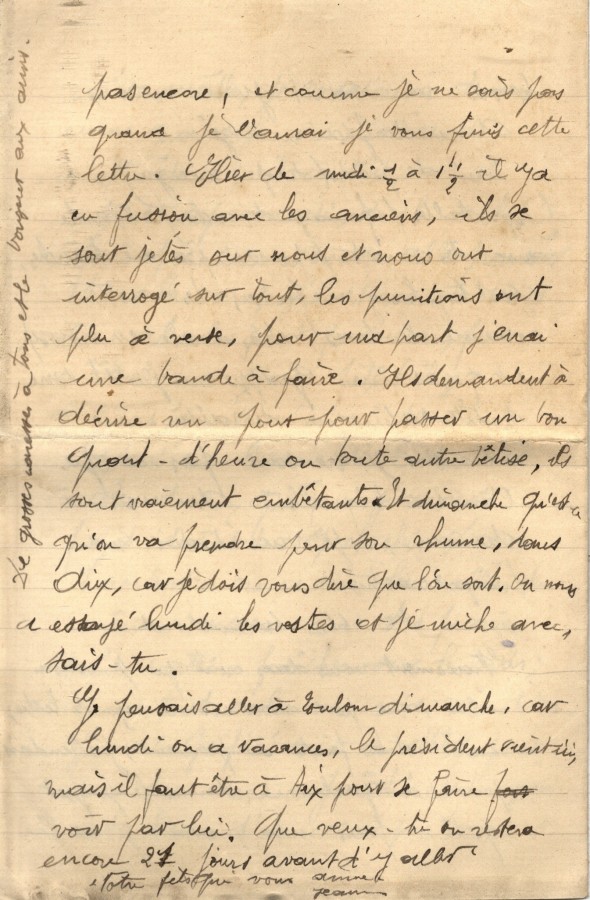 pas encore, et comme je ne sais pas
quand je l'aurai je vous finis cette
lettre. Hier de midi 1/2 à 1 1/2 il y a
eu fusion avec les anciens, ils se
sont jetés sur nous et nous ont
interrogé sur tout, les punitions ont
plu à verse, pour ma part j'en ai
une bande à faire. Ils demandent à
décrire un pour passer un bon
quart-d'heure ou toute autre bêtise, ils
sont vraiement embêtants. Et dimanche qu'est ce
qu'on va prendre pour son rhume, dans
Aix, car je dois vous dire que l'on sort. On nous
a essayé lundi les vestes et je niche avec,
sais-tu.
Je pensais aller à Toulon dimanche, car
lundi on a vacances, le président vient ici,
mais il faut être à Aix pour se faire
voir par lui. Que veux-tu on restera
encore 21 jours avant d'y aller
Votre fils qui vous aime
Jean
De grosses caresses à tous et le bonjour aux amis.